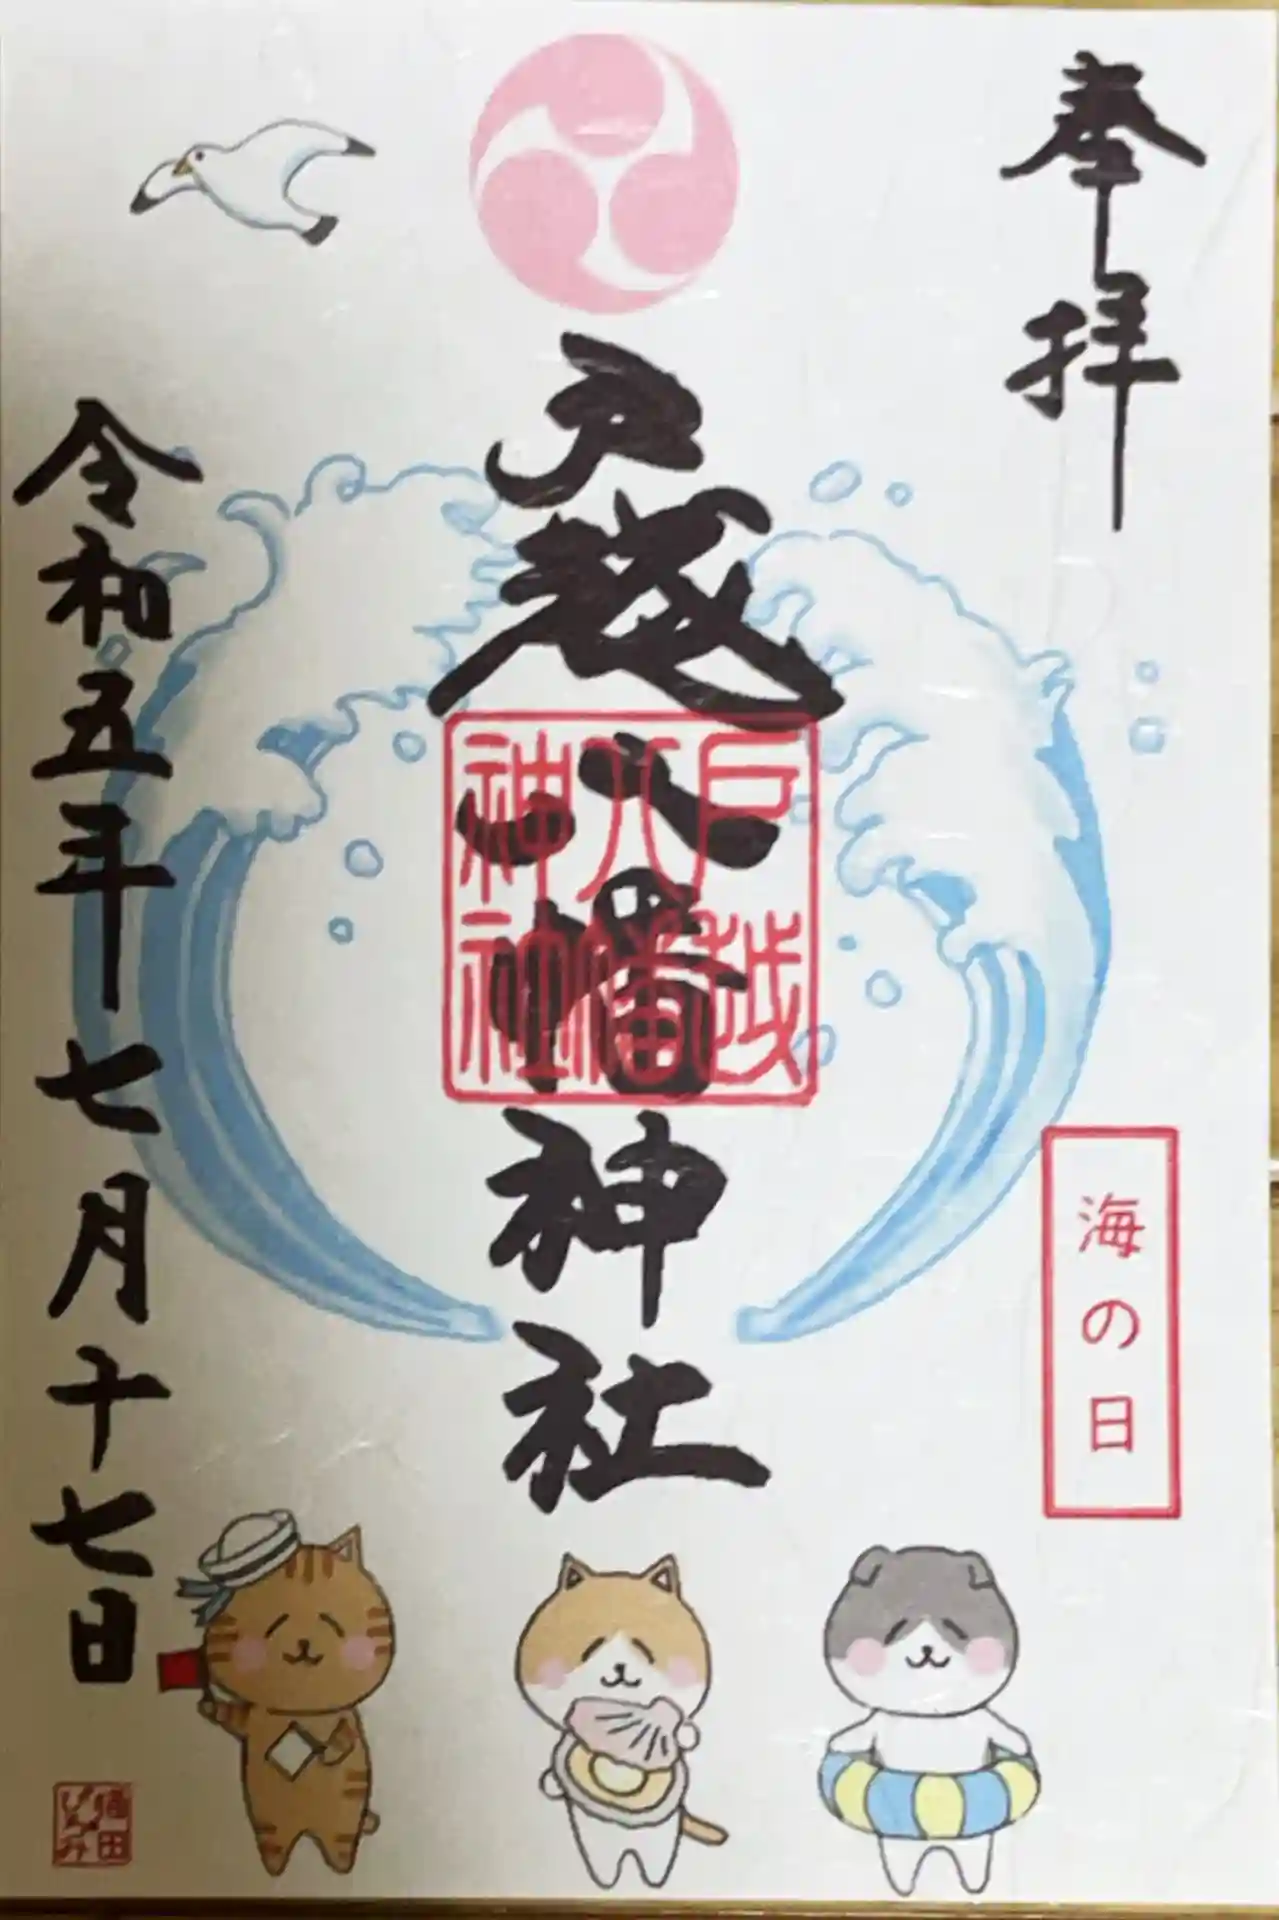 奉拝
海の日
戸越八幡神社
戸越
八幡
神社
令和五年七月十七日